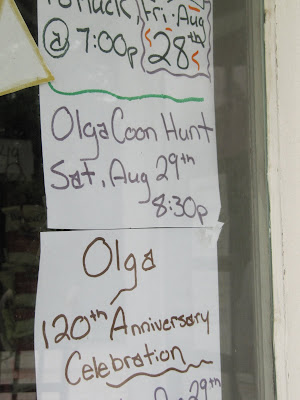 Potluck, Fri. Aug
@ 7:00p 28th
Olga Coon Hunt
Sat, Aug 29th
8:30p
Olga
120th Anniversary
Celebration
Aug 29th